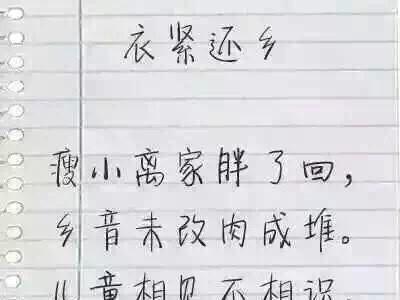 衣紧还乡
瘦小离家胖了回，
乡音未改肉成堆。
儿童相见不相识